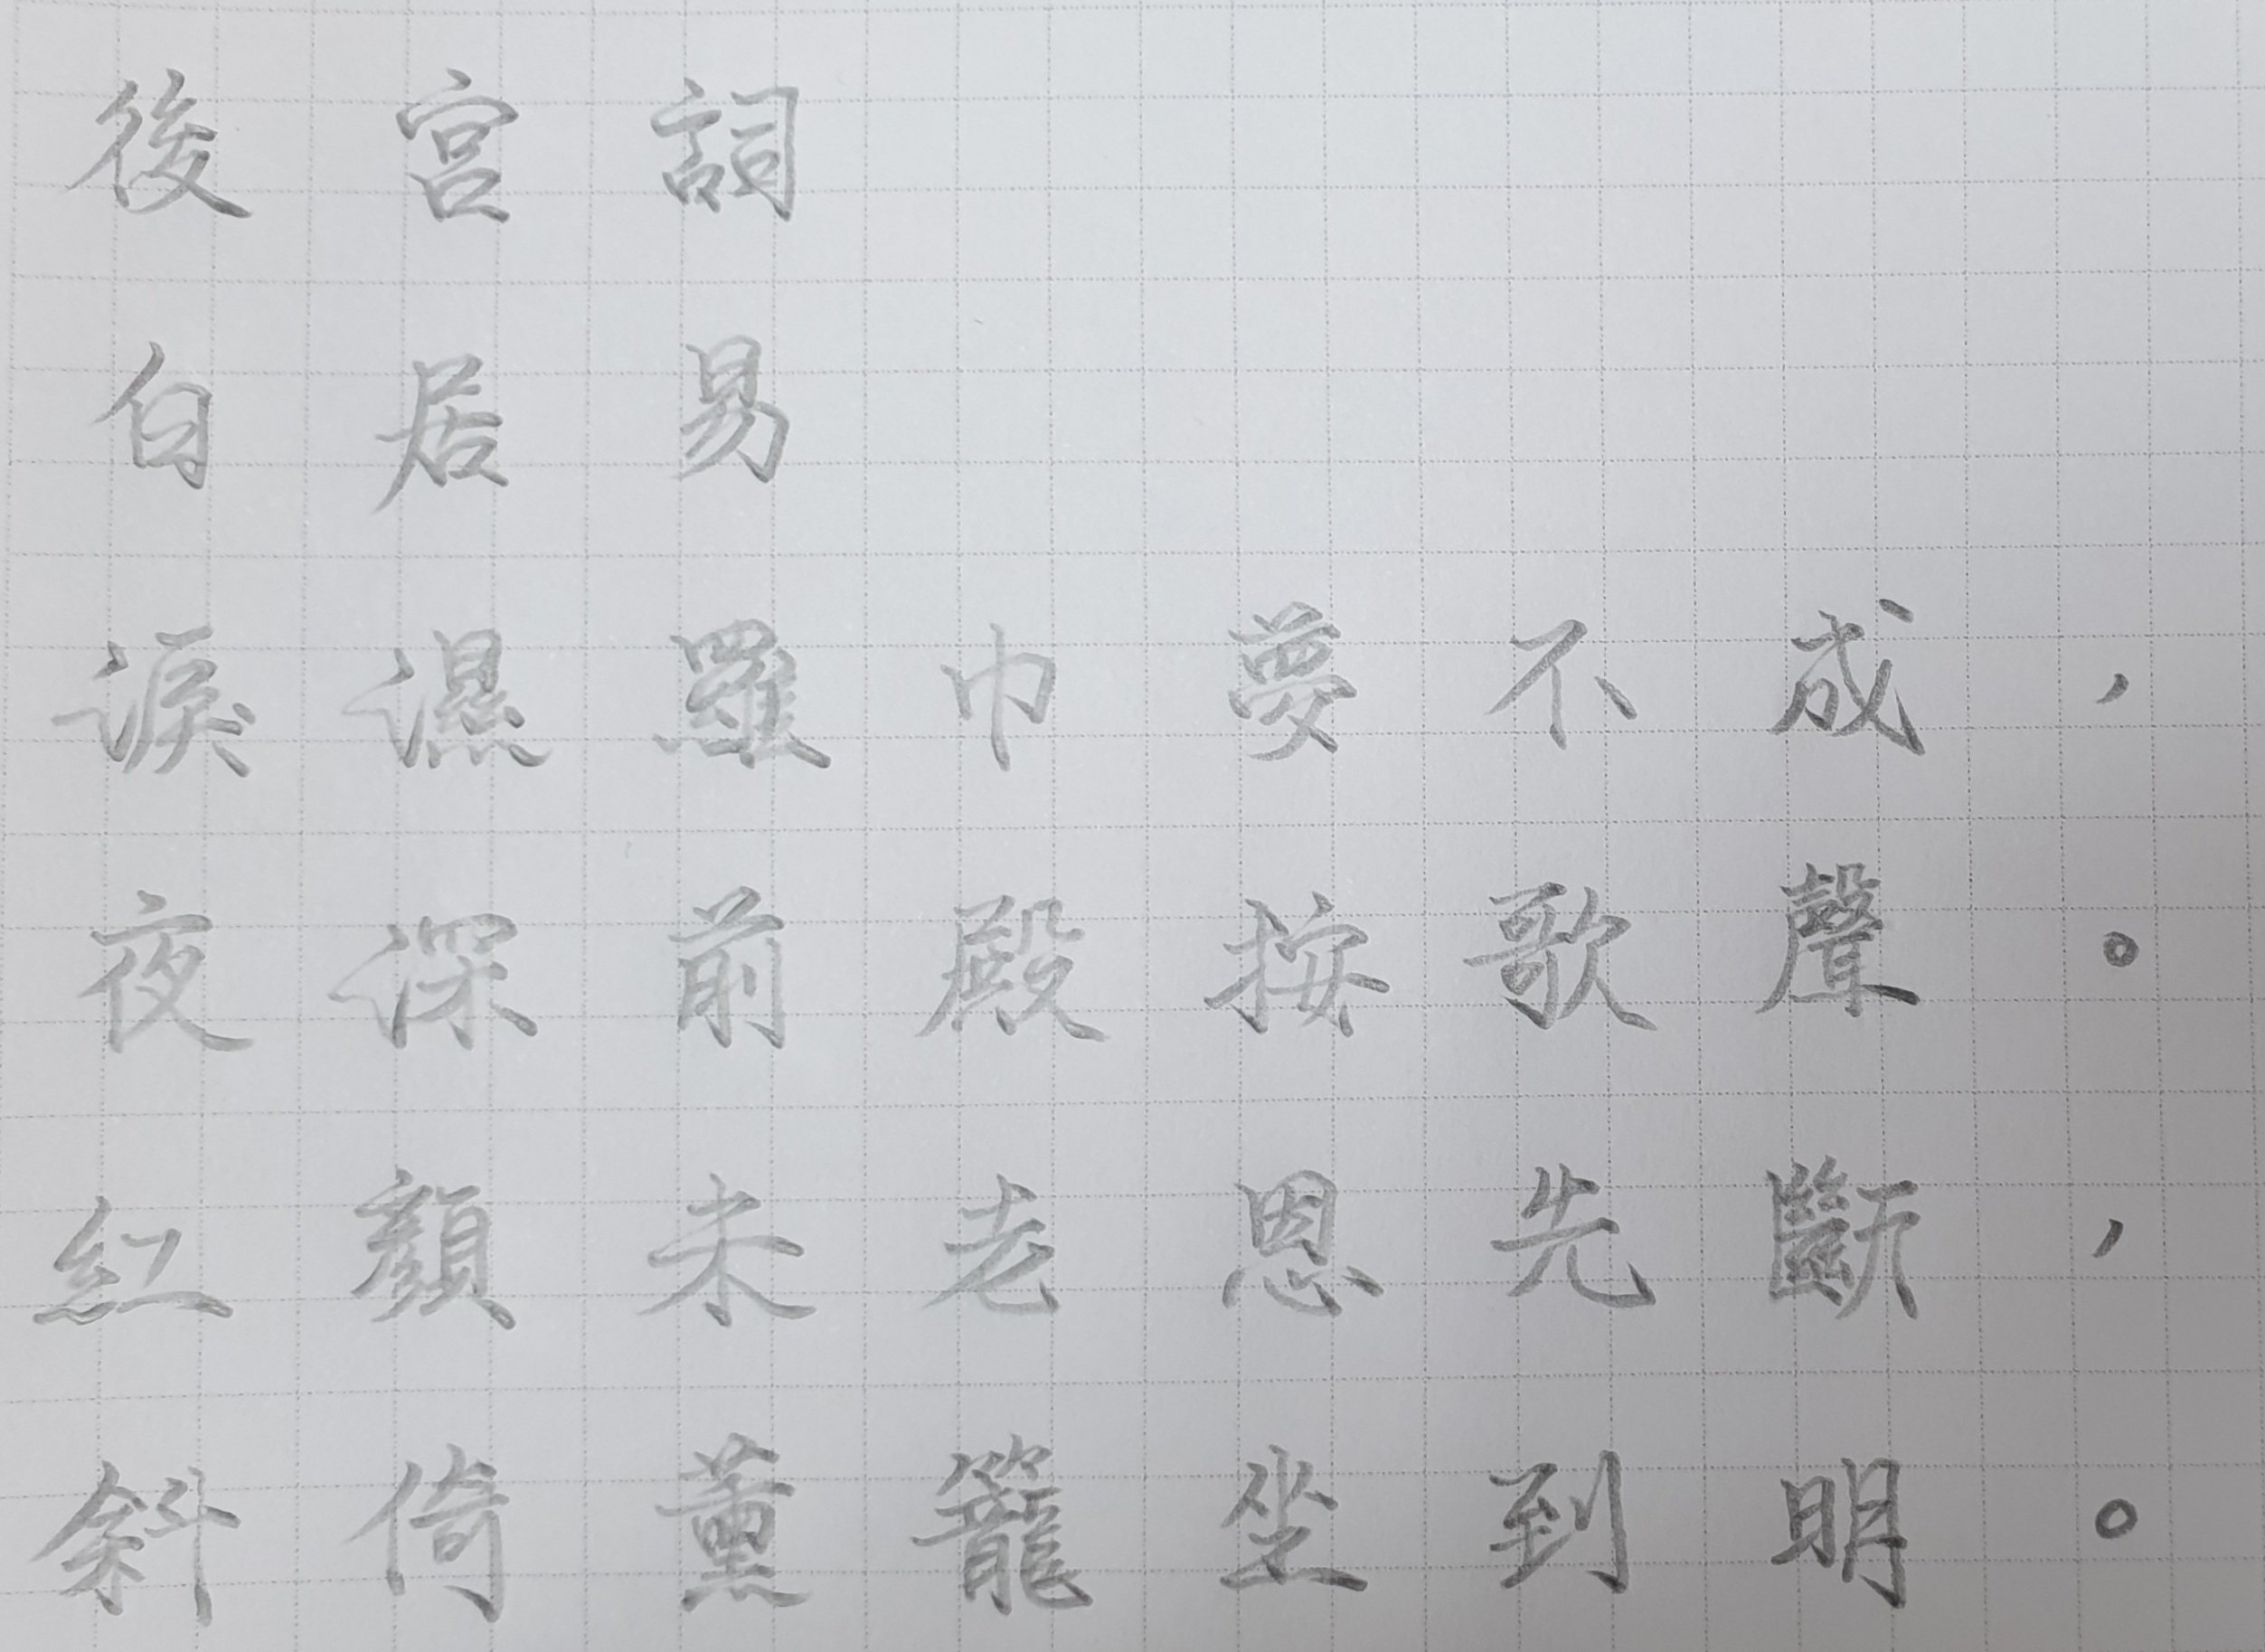 後宮詞
白居易
淚濕羅巾夢不成，
夜深前殿按歌聲。
紅顏未老恩先斷，
斜倚薰籠坐到明。